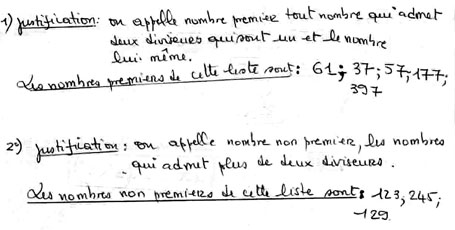 1) Justification: on appelle nombre premier tout nombre qui admet
deux diviseurs qui sont un et le nombre
lui-même.
Les nombres premiers de cette liste sont : 61; 37; 57; 177;
397
2º) Justification : on appelle nombre non premier, les nombres
qui admet plus de deux diviseurs.
Les nombres non premiers de cette liste sont: 123, 245;
129